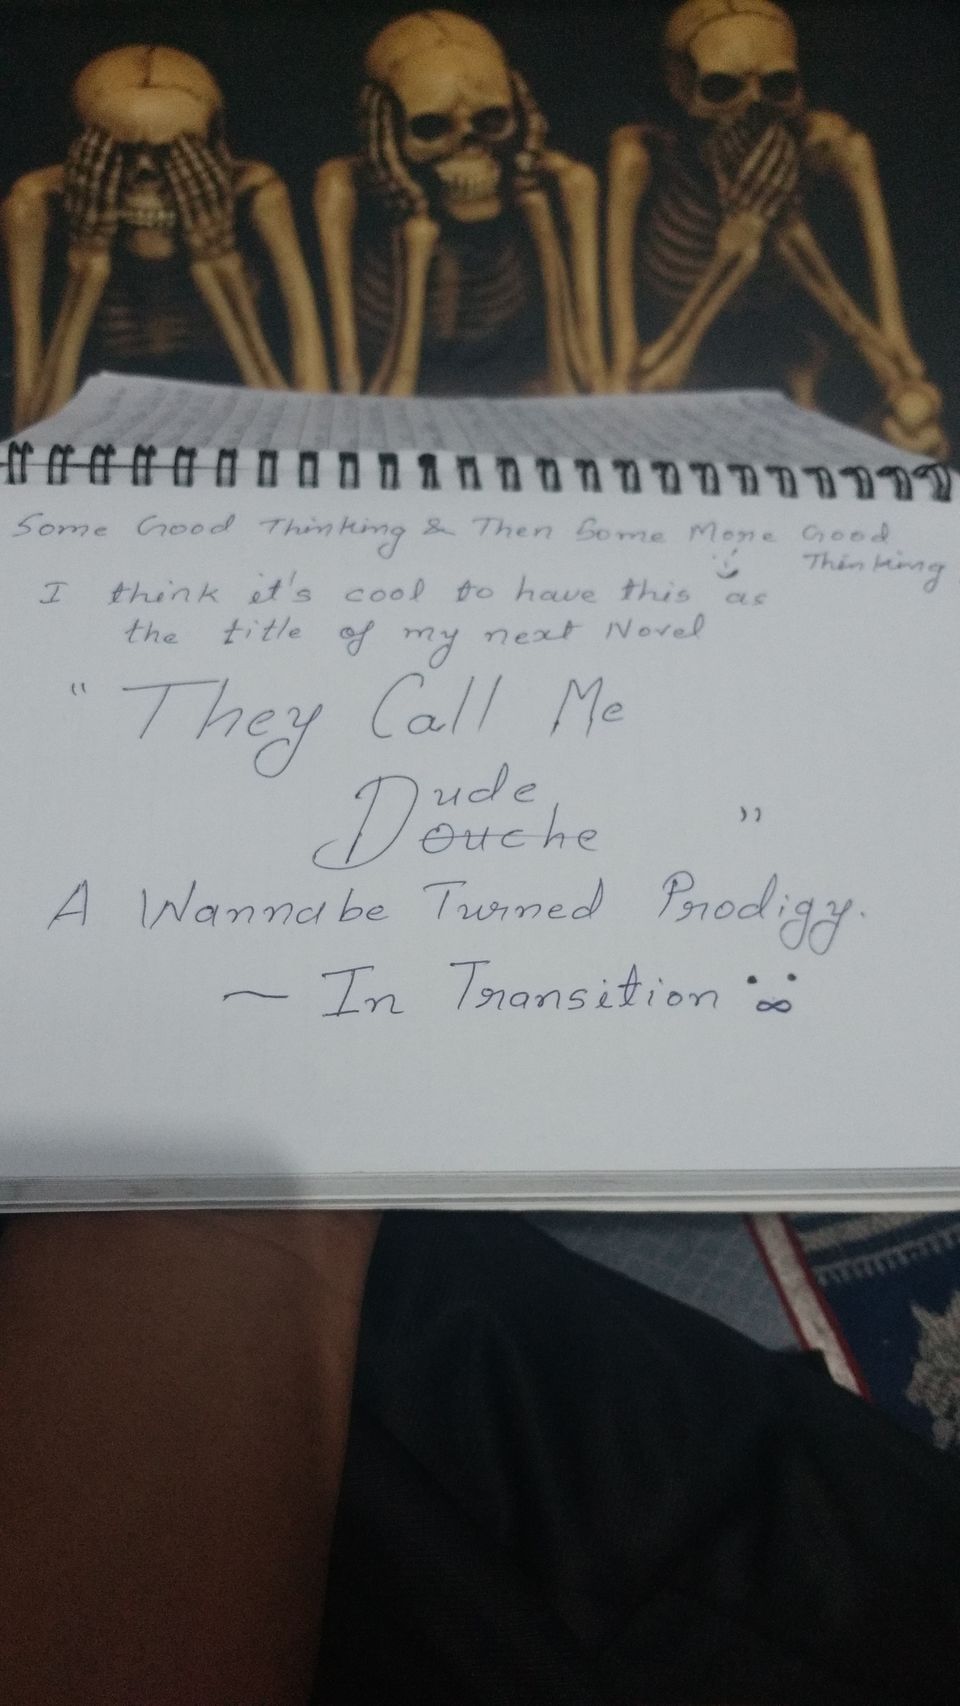 Some Good Thinking & Then Some More Good
Thinking
I think it's cool to have this as
the title of my next Novel
"They Call Me
Dude
Douche"
A Wannabe Turned Prodigy.
~ In Transition